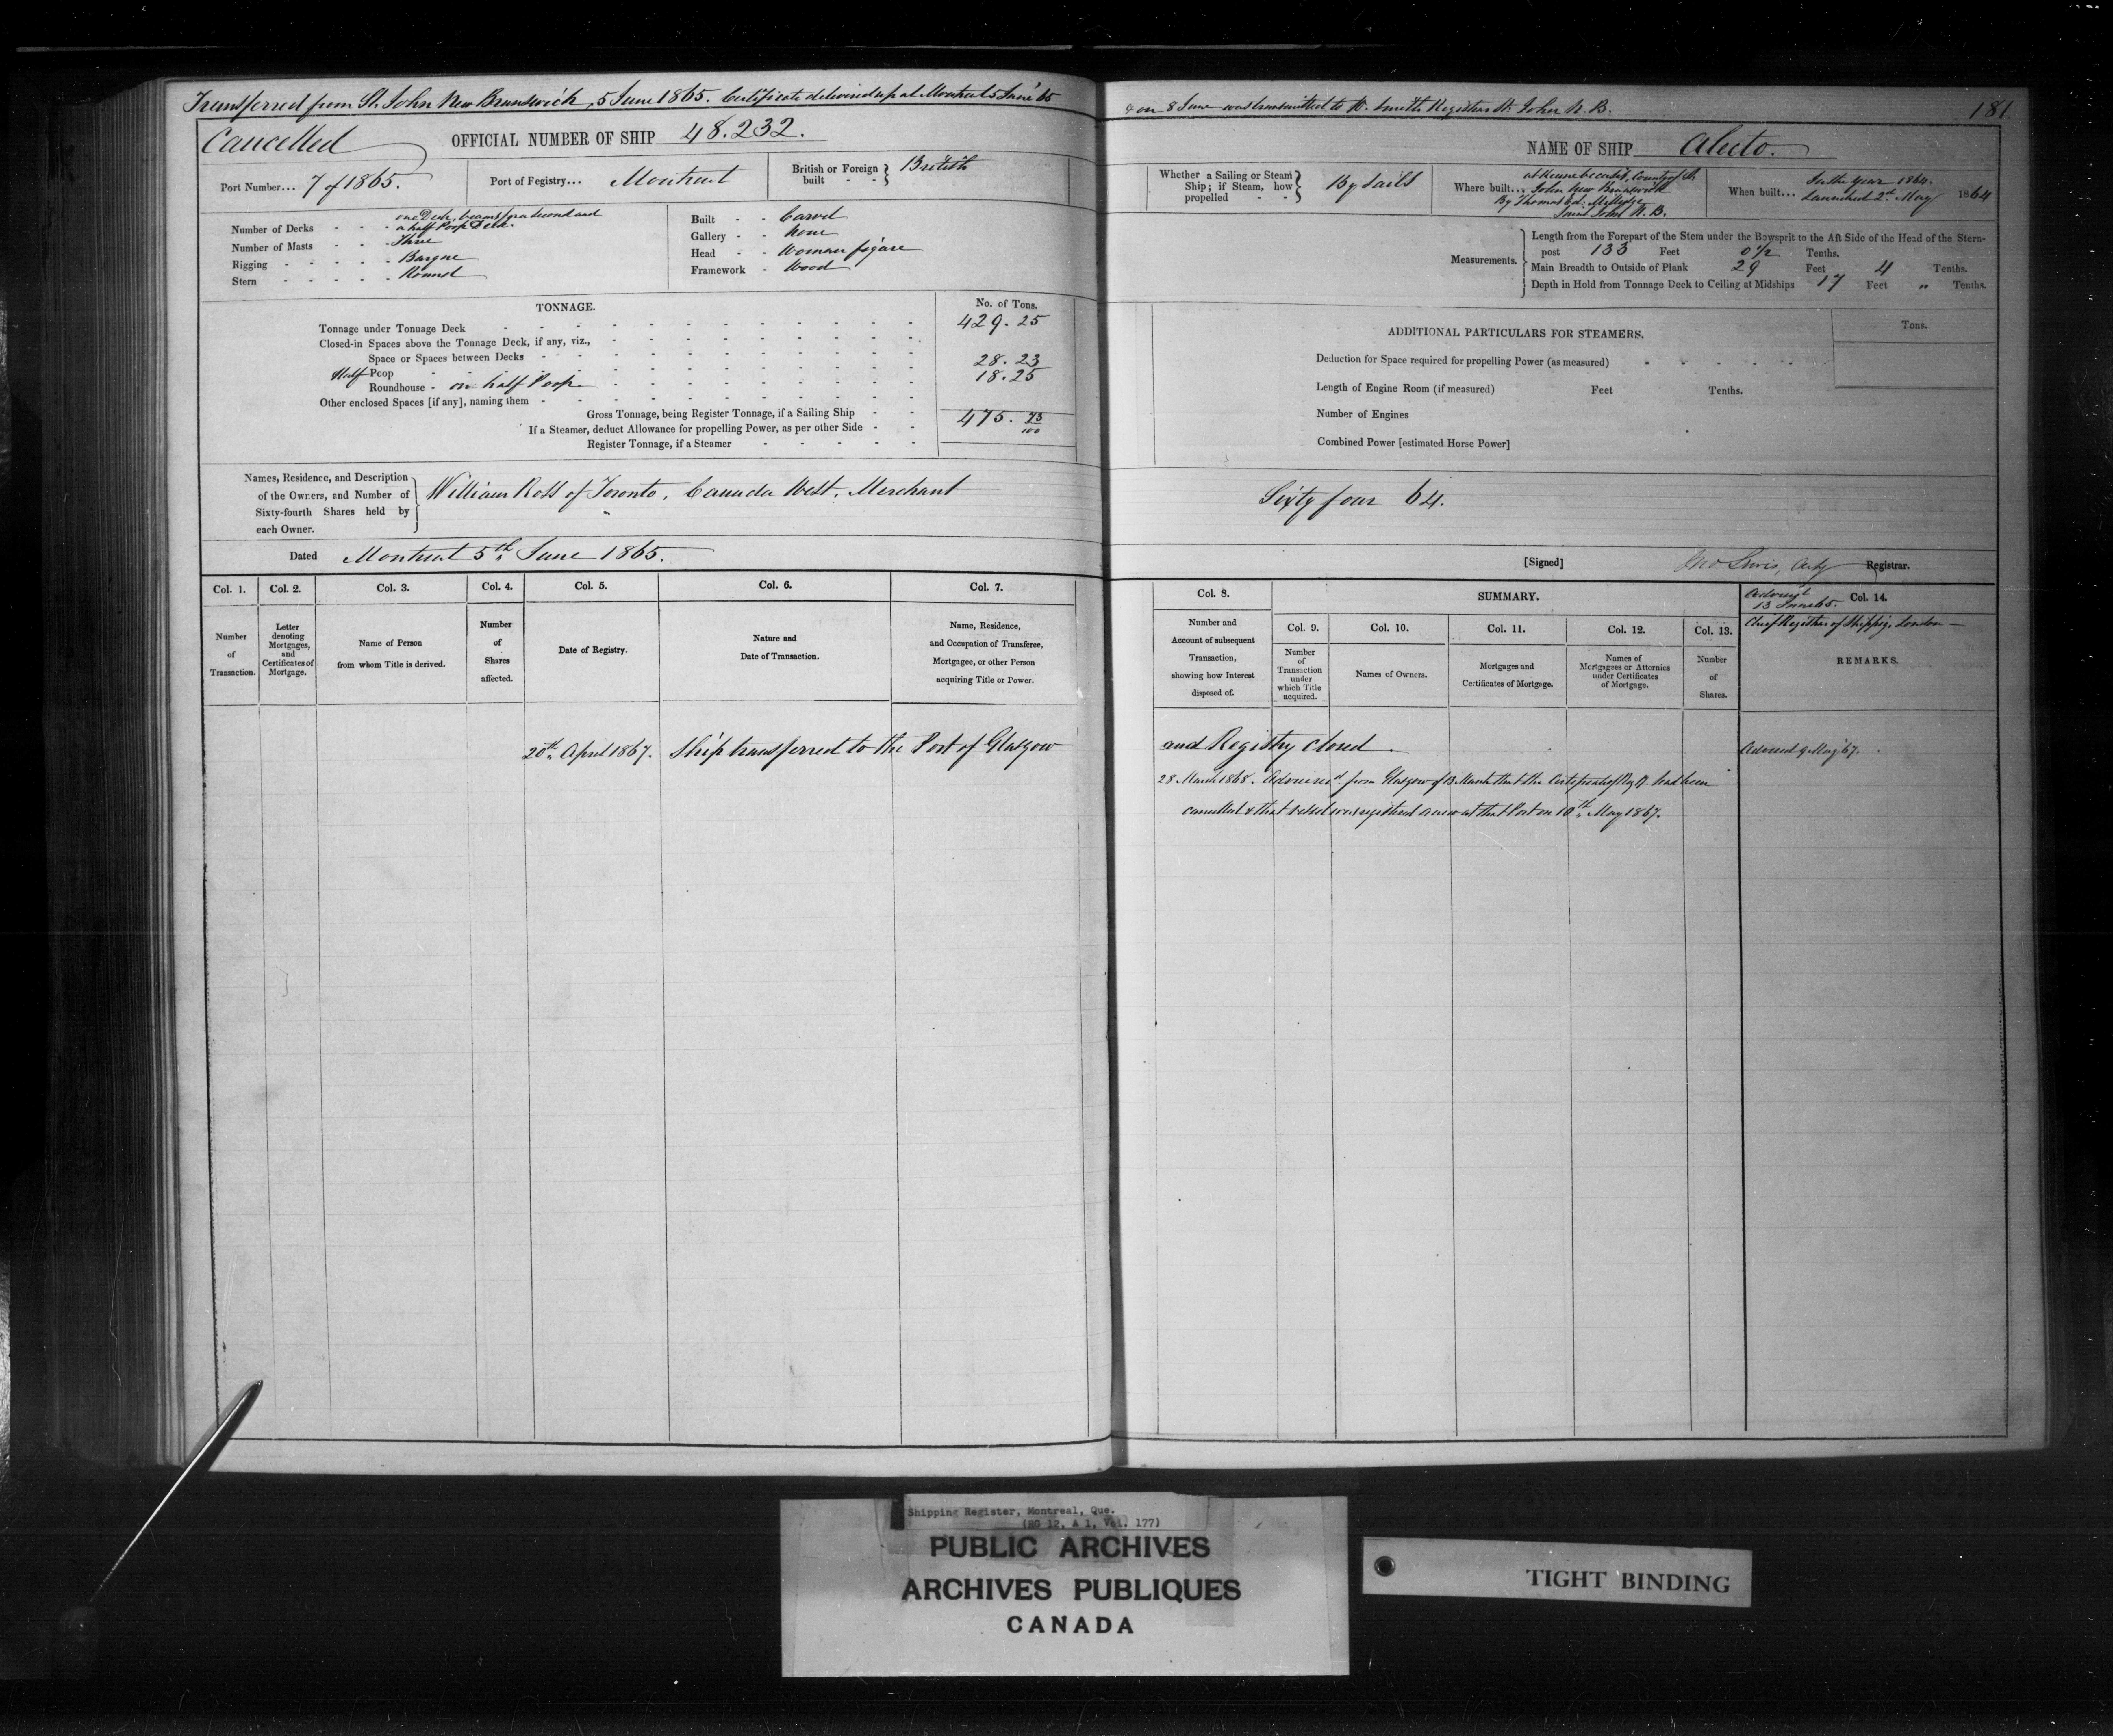 Transferred from St. John New Brunswick, 5 June 1865. Certificate delivered up at Montreal 5 June '65
& on 8 June was transmitted to W. Smith Registrar St. John N. B.
181
Cancelled
OFFICIAL NUMBER OF SHIP 48.232.
NAME OF SHIP Alecto.
Port Number... 7 of 1865.
Port of Registry... Montreal
British or Foreign built - - } British
Whether a Sailing or Steam Ship; if Steam, how propelled - - } By Sails
Where built... at Kennebeccasis, County of St. John New Brunswick
By Thomas Ed: Millidge
Saint John N. B.
When built... In the Year 1864.
Launched 2d May 1864
Number of Decks - - - one Deck, beams for a second and
a half Poop Deck.
Number of Masts - - - Three
Rigging - - - - - Barque
Stern - - - - - Round
Built - - Carvel
Gallery - - None
Head - - Woman figure
Framework - Wood
Measurements.
Length from the Forepart of the Stem under the Bowsprit to the Aft Side of the Head of the Stern-
post 133 Feet 0 1/2 Tenths.
Main Breadth to Outside of Plank 29 Feet 4 Tenths.
Depth in Hold from Tonnage Deck to Ceiling at Midships 17 Feet „ Tenths.
TONNAGE.
No. of Tons.
Tonnage under Tonnage Deck 429.25
Closed-in Spaces above the Tonnage Deck, if any, viz.,
Space or Spaces between Decks
Half Poop 28.23
Roundhouse - on half Poop 18.25
Other enclosed Spaces [if any], naming them
Gross Tonnage, being Register Tonnage, if a Sailing Ship 475. 73/100
If a Steamer, deduct Allowance for propelling Power, as per other Side
Register Tonnage, if a Steamer
ADDITIONAL PARTICULARS FOR STEAMERS.
Tons.
Deduction for Space required for propelling Power (as measured)
Length of Engine Room (if measured) Feet Tenths.
Number of Engines
Combined Power [estimated Horse Power]
Names, Residence, and Description
of the Owners, and Number of
Sixty-fourth Shares held by
each Owner.
William Ross of Toronto, Canada West, Merchant
Sixty four 64.
Dated Montreal 5th June 1865.
[Signed] Jno Lewis, Actg Registrar.
Col. 1.
Number
of
Transaction.
Col. 2.
Letter
denoting
Mortgages,
and
Certificates of
Mortgage.
Col. 3.
Name of Person
from whom Title is derived.
Col. 4.
Number
of
Shares
affected.
Col. 5.
Date of Registry.
Col. 6.
Nature and
Date of Transaction.
Col. 7.
Name, Residence,
and Occupation of Transferee,
Mortgagee, or other Person
acquiring Title or Power.
Col. 8.
Number and
Account of subsequent
Transaction,
showing how Interest
disposed of.
SUMMARY.
Col. 9.
Number
of
Transaction
under
which Title
acquired.
Col. 10.
Names of Owners.
Col. 11.
Mortgages and
Certificates of Mortgage.
Col. 12.
Names of
Mortgagees or Attornies
under Certificates
of Mortgage.
Col. 13.
Number
of
Shares.
Col. 14.
13 June 65.
Chief Registrar of Shippg, London
REMARKS.
20th April 1867. Ship transferred to the Port of Glasgow
and Registry closed.
Advised 9 May '67.
28 March 1868. Advised from Glasgow of 13 March that the Certificate of Reg'y. had been
cancelled & that vessel was registered anew at that Port on 10th May 1867.
Shipping Register, Montreal, Que.
(RG 12, A 1, Vol. 177)
PUBLIC ARCHIVES
ARCHIVES PUBLIQUES
CANADA
TIGHT BINDING